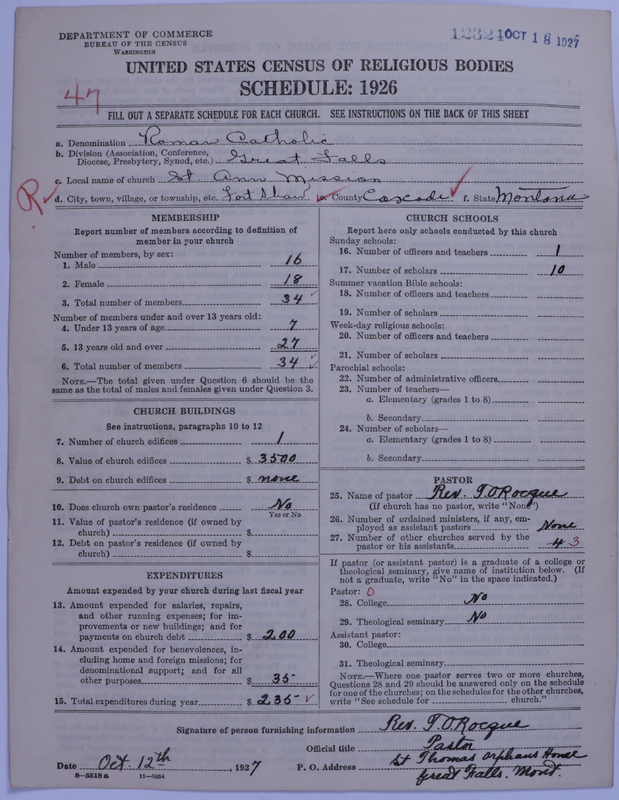 DEPARTMENT OF COMMERCE
BUREAU OF THE CENSUS
WASHINGTON
12324 OCT 18 1927
UNITED STATES CENSUS OF RELIGIOUS BODIES
SCHEDULE: 1926
47
FILL OUT A SEPARATE SCHEDULE FOR EACH CHURCH. SEE INSTRUCTIONS ON THE BACK OF THIS SHEET
a. Denomination Roman Catholic
b. Division (Association, Conference, Diocese, Presbytery, Synod, etc.) Great Falls
c. Local name of church St Ann Mission
R
d. City, town, village, or township, etc. Fort Shaw e. County Cascade f. State Montana
MEMBERSHIP
Report number of members according to definition of
member in your church
Number of members, by sex:
1. Male 16
2. Female 18
3. Total number of members 34
Number of members under and over 13 years old:
4. Under 13 years of age 7
5. 13 years old and over 27
6. Total number of members 34
NOTE.—The total given under Question 6 should be the
same as the total of males and females given under Question 3.
CHURCH BUILDINGS
See instructions, paragraphs 10 to 12
7. Number of church edifices 1
8. Value of church edifices $ 3500
9. Debt on church edifices $ none
10. Does church own pastor's residence No
Yes or No
11. Value of pastor's residence (if owned by
church) $
12. Debt on pastor's residence (if owned by
church) $
EXPENDITURES
Amount expended by your church during last fiscal year
13. Amount expended for salaries, repairs,
and other running expenses; for im-
provements or new buildings; and for
payments on church debt $ 200
14. Amount expended for benevolences, in-
cluding home and foreign missions; for
denominational support; and for all
other purposes $ 35
15. Total expenditures during year $ 235
CHURCH SCHOOLS
Report here only schools conducted by this church
Sunday schools:
16. Number of officers and teachers 1
17. Number of scholars 10
Summer vacation Bible schools:
18. Number of officers and teachers
19. Number of scholars
Week-day religious schools:
20. Number of officers and teachers
21. Number of scholars
Parochial schools:
22. Number of administrative officers
23. Number of teachers—
a. Elementary (grades 1 to 8)
b. Secondary
24. Number of scholars—
a. Elementary (grades 1 to 8)
b. Secondary
PASTOR
25. Name of pastor Rev. T. O Rocque
(If church has no pastor, write "None")
26. Number of ordained ministers, if any, em-
ployed as assistant pastors None
27. Number of other churches served by the
pastor or his assistants 4 3
If pastor (or assistant pastor) is a graduate of a college or
theological seminary, give name of institution below. (If
not a graduate, write "No" in the space indicated.)
Pastor: 0
28. College No
29. Theological seminary No
Assistant pastor:
30. College
31. Theological seminary
NOTE.—Where one pastor serves two or more churches,
Questions 28 and 29 should be answered only on the schedule
for one of the churches; on the schedules for the other churches,
write "See schedule for church."
Signature of person furnishing information Rev. T. O. Rocque
Official title Pastor
Date Oct. 12th, 1927 P. O. Address St Thomas Orphans Home
Great Falls. Mont.
8—5518 a 11—9054